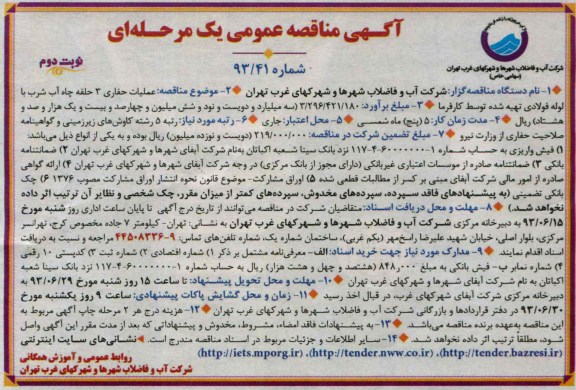 آگهی مناقصه عمومی یک مرحله‌ای
شماره ۹۳/۴۱
نوبت دوم
شرکت آب و فاضلاب شهرها و شهرکهای غرب تهران
(سهامی خاص)
۱- نام دستگاه مناقصه‌گزار: شرکت آب و فاضلاب شهرها و شهرکهای غرب تهران ۲- موضوع مناقصه: عملیات حفاری ۳ حلقه چاه آب شرب با
لوله فولادی تهیه شده توسط کارفرما ۳- مبلغ برآورد: ۳/۲۹۶/۴۲۱/۱۸۰ (سه میلیارد و دویست و نود و شش میلیون و چهارصد و بیست و یک هزار و صد و
هشتاد) ریال ۴- مدت زمان کار: ۵ (پنج) ماه شمسی ۵- محل اعتبار: جاری ۶- رتبه مورد نیاز: رتبه ۵ رشته کاوش‌های زیرزمینی و گواهینامه
صلاحیت حفاری از وزارت نیرو ۷- مبلغ تضمین شرکت در مناقصه: ۲۱۹/۰۰۰/۰۰۰ (دویست و نوزده میلیون) ریال بوده و به یکی از انواع ذیل می‌باشد:
۱) فیش واریزی به حساب شماره ۱-۶۰۰۰۰۰۰۰-۴-۱۱۷ نزد بانک سینا شعبه اکباتان به‌نام شرکت آبفای شهرها و شهرکهای غرب تهران ۲) ضمانتنامه
بانکی ۳) ضمانتنامه صادره از موسسات اعتباری غیربانکی (دارای مجوز از بانک مرکزی) در وجه شرکت آبفای شهرها و شهرکهای غرب تهران ۴) ارائه گواهی
صادره از امور مالی شرکت آبفای مبنی بر کسر از مطالبات قطعی شده ۵) اوراق مشارکت- موضوع قانون نحوه انتشار اوراق مشارکت مصوب ۱۳۷۶ ۶) چک
بانکی تضمینی (به پیشنهادهای فاقد سپرده، سپرده‌های مخدوش، سپرده‌های کمتر از میزان مقرر، چک شخصی و نظایر آن ترتیب اثر داده
نخواهد شد.) ۸- مهلت و محل دریافت اسناد: متقاضیان شرکت در مناقصه می‌توانند از تاریخ درج آگهی تا پایان ساعت اداری روز شنبه مورخ
۹۳/۰۶/۱۵ به دبیرخانه مرکزی شرکت آب و فاضلاب شهرها و شهرکهای غرب تهران به نشانی: تهران- کیلومتر ۷ جاده مخصوص کرج، تهرانسر
مرکزی، بلوار اصلی، خیابان شهید علیرضا راسخ‌مهر (یکم غربی)، ساختمان شماره یک، شماره تلفن‌های تماس: ۹-۴۴۵۰۸۳۳۶ مراجعه و نسبت به دریافت
اسناد اقدام نمایند. ۹- مدارک مورد نیاز جهت خرید اسناد: الف- معرفی‌نامه مشتمل بر ذکر ۱) شماره اقتصادی ۲) شماره ثبت ۳) کدپستی ۱۰ رقمی
۴) شماره نمابر ب- فیش بانکی به مبلغ ۸۴۸/۰۰۰ (هشتصد و چهل و هشت هزار) ریال به حساب شماره ۱-۶۰۰۰۰۰۰۰-۴-۱۱۷ نزد بانک سینا شعبه
اکباتان به نام شرکت آبفای شهرها و شهرکهای غرب تهران ۱۰- مهلت و محل تحویل پیشنهاد: تا ساعت ۱۵ روز شنبه مورخ ۹۳/۰۶/۲۹ به
دبیرخانه مرکزی شرکت آبفای شهرکهای غرب، در قبال اخذ رسید ۱۱- زمان و محل گشایش پاکات پیشنهادی: ساعت ۹ روز یکشنبه مورخ
۹۳/۰۶/۳۰ در دفتر قراردادها و بازرگانی شرکت آب و فاضلاب شهرها و شهرکهای غرب تهران ۱۲- هزینه درج هر ۲ مرحله چاپ آگهی مربوط به
این مناقصه به‌عهده برنده مناقصه می‌باشد. ۱۳- به پیشنهادات فاقد امضاء، مشروط، مخدوش و پیشنهاداتی که بعد از مدت مقرر این آگهی واصل
شود، مطلقاً ترتیب اثر داده نخواهد شد. ۱۴- سایر اطلاعات و جزئیات مربوط در اسناد مناقصه مندرج است. نشانی‌های سایت اینترنتی
(http://iets.mporg.ir) ،(http://tender.nww.co.ir) ،(http://tender.bazresi.ir)
روابط عمومی و آموزش همگانی
شرکت آب و فاضلاب شهرها و شهرکهای غرب تهران